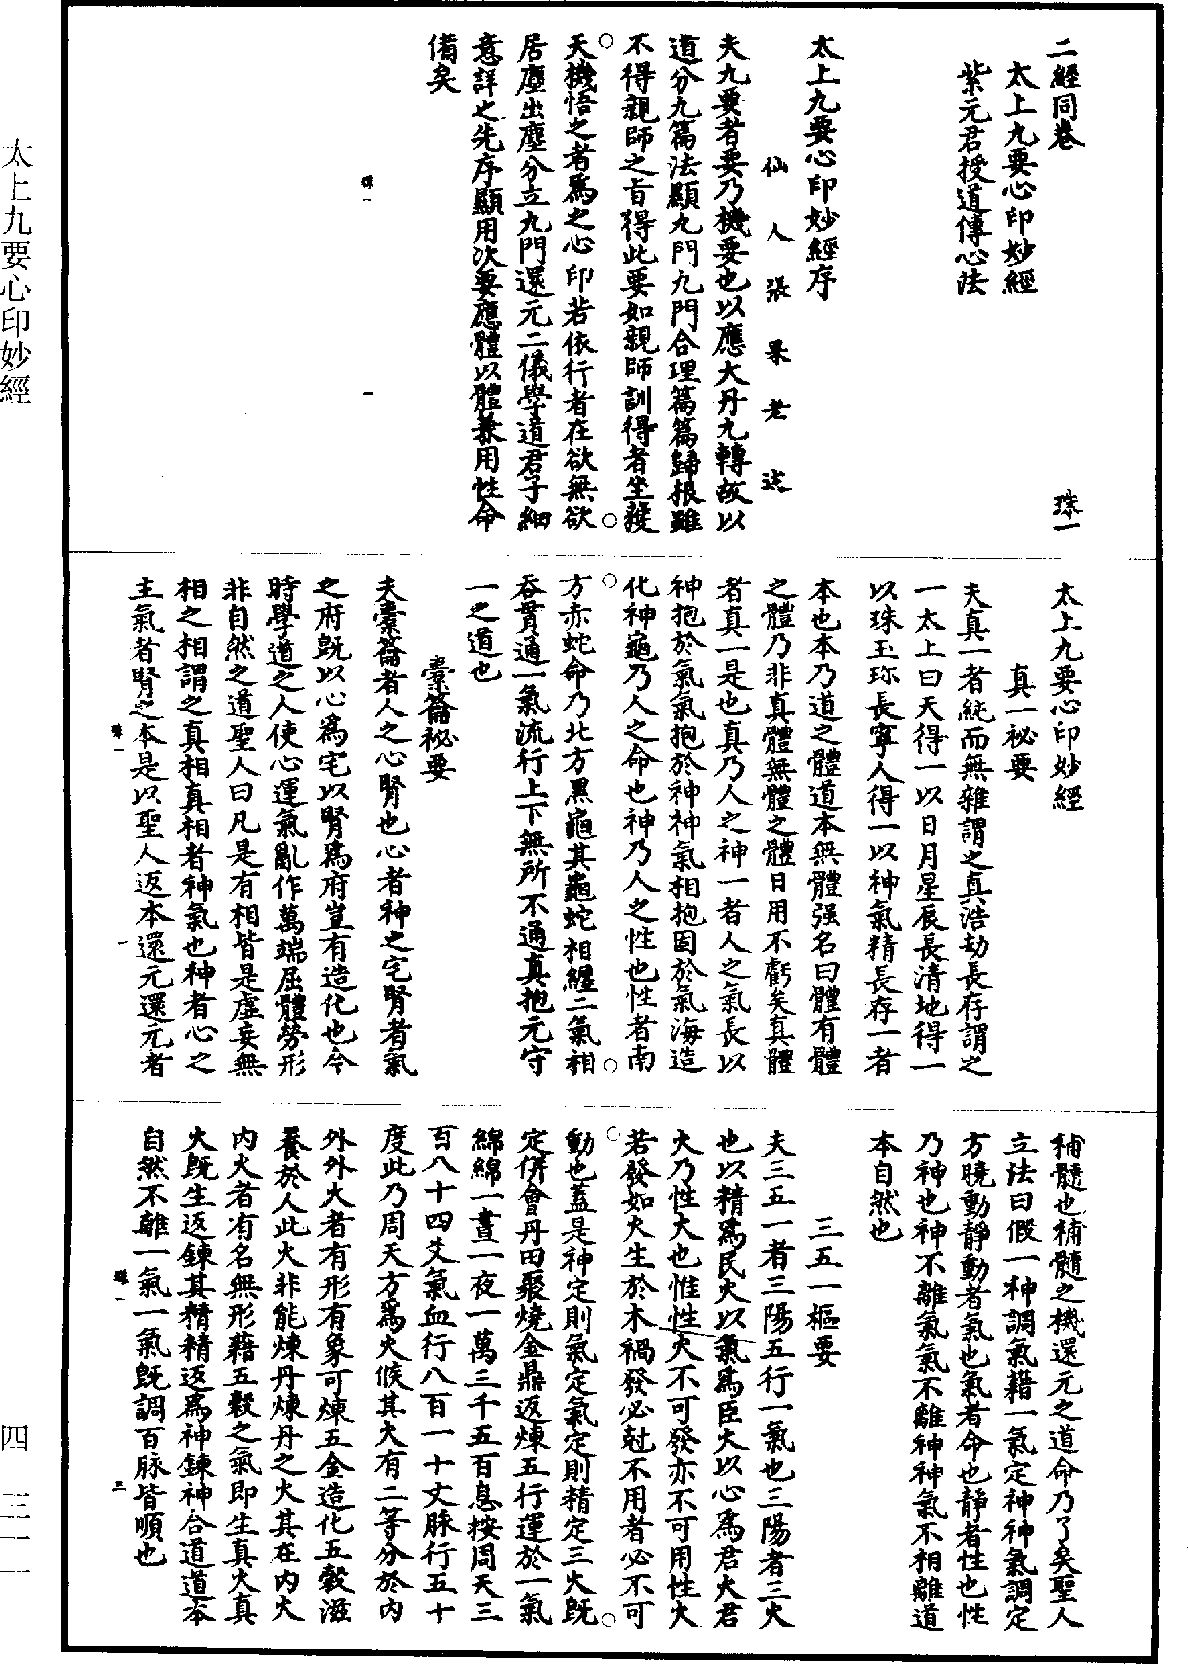 二經同卷
珠一
太上九要心印妙經
紫元君授道傳心法
太上九要心印妙經序
仙人張果老述
夫九要者要乃機要也以應大丹九轉故以
道分九篇法顯九門九門合理篇篇歸根雖
不得親師之旨得此要如親師訓得者坐獲
天機悟之者爲之心印若依行者在欲無欲
居塵出塵分立九門還元二儀學道君子細
意詳之先序顯用次要應體以體兼用性命
備矣
珠一
一
太上九要心印妙經
真一秘要
夫真一者純而無雜謂之真浩劫長存謂之
一太上曰天得一以日月星辰長清地得一
以珠玉珍長寧人得一以神氣精長存一者
本也本乃道之體道本無體强名曰體有體
之體乃非真體無體之體日用不虧矣真體
者真一是也真乃人之神一者人之氣長以
神抱於氣氣抱於神神氣相抱固於氣海造
化神龜乃人之命也神乃人之性也性者南
方赤蛇命乃北方黑龜其龜蛇相纏二氣相
吞貫通一氣流行上下無所不通真抱元守
一之道也
橐籥秘要
夫橐籥者人之心腎也心者神之宅腎者氣
之府旣以心爲宅以腎爲府豈有造化也今
時學道之人使心運氣亂作萬端屈體勞形
非自然之道聖人曰凡是有相皆是虛妄無
相之相謂之真相真相者神氣也神者心之
主氣者腎之本是以聖人返本還元還元者
珠一
一
補髓也補髓之機還元之道命乃了矣聖人
立法曰假一神調氣藉一氣定神神氣調定
方曉動靜動者氣也氣者命也靜者性也性
乃神也神不離氣氣不離神神氣不相離道
本自然也
三五一樞要
夫三五一者三陽五行一氣也三陽者三火
也以精爲民火以氣爲臣火以心爲君火君
火乃性火也惟性火不可發亦不可用性火
若發如火生於木禍發必尅不用者必不可
動也蓋是神定則氣定氣定則精定三火旣
定併會丹田聚燒金鼎返煉五行運於一氣
綿綿一晝一夜一萬三千五百息按周天三
百八十四爻氣血行八百一十丈脉行五十
度此乃周天方爲火候其火有二等分於內
外外火者有形有象可煉五金造化五穀滋
養於人此火非能煉丹煉丹之火其在內火
內火者有名無形藉五穀之氣即生真火真
火旣生返鍊其精精返爲神鍊神合道道本
自然不離一氣一氣旣調百脉皆順也
珠一
三
太上九要心印妙經
四
三一一